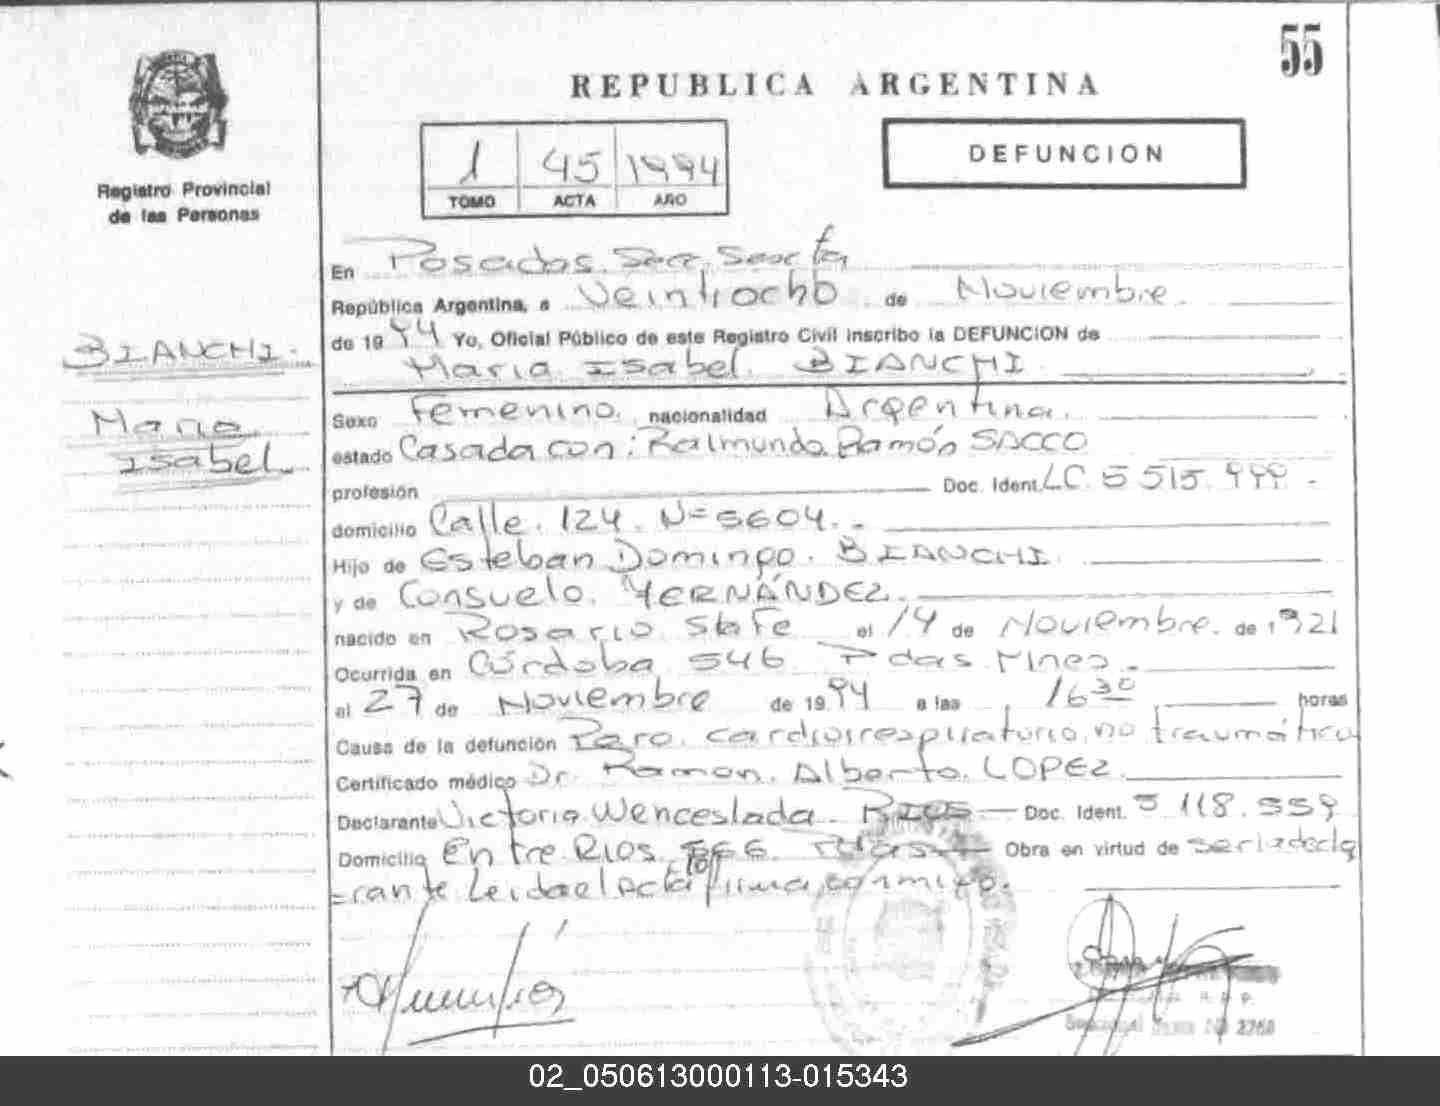 55
REPUBLICA ARGENTINA
DEFUNCION
1 45 1994
TOMO ACTA AÑO
Registro Provincial
de las Personas
BIANCHI.
Maria
Isabel
En Posadas. Secc. Sexta
República Argentina, a Veintiocho de Noviembre.
de 1994 Yo, Oficial Público de este Registro Civil inscribo la DEFUNCION de
Maria Isabel BIANCHI.
Sexo Femenino. nacionalidad Argentina.
estado Casada con: Raimundo Ramón SACCO
profesión Doc. Ident. LC. 5 515. 999 -
domicilio Calle. 124. N= 5604. -
Hijo de Esteban Domingo. BIANCHI.
y de Consuelo. HERNÁNDEZ.
nacido en Rosario Sta Fe el 14 de Noviembre. de 1921
Ocurrida en Córdoba 546 Pdas. Mnes.
el 27 de Noviembre de 1994 a las 16 30 horas
Causa de la defunción Paro. cardiorrespiratorio, no traumático
Certificado médico Dr. Ramon. Alberto. LOPEZ.
Declarante Victoria Wenceslada RIOS Doc. Ident. 5 118. 559
Domicilio Entre Rios Pdas Obra en virtud de ser la decla
=rante Leida el Acta firma conmigo.
R. P. P.
02_050613000113-015343